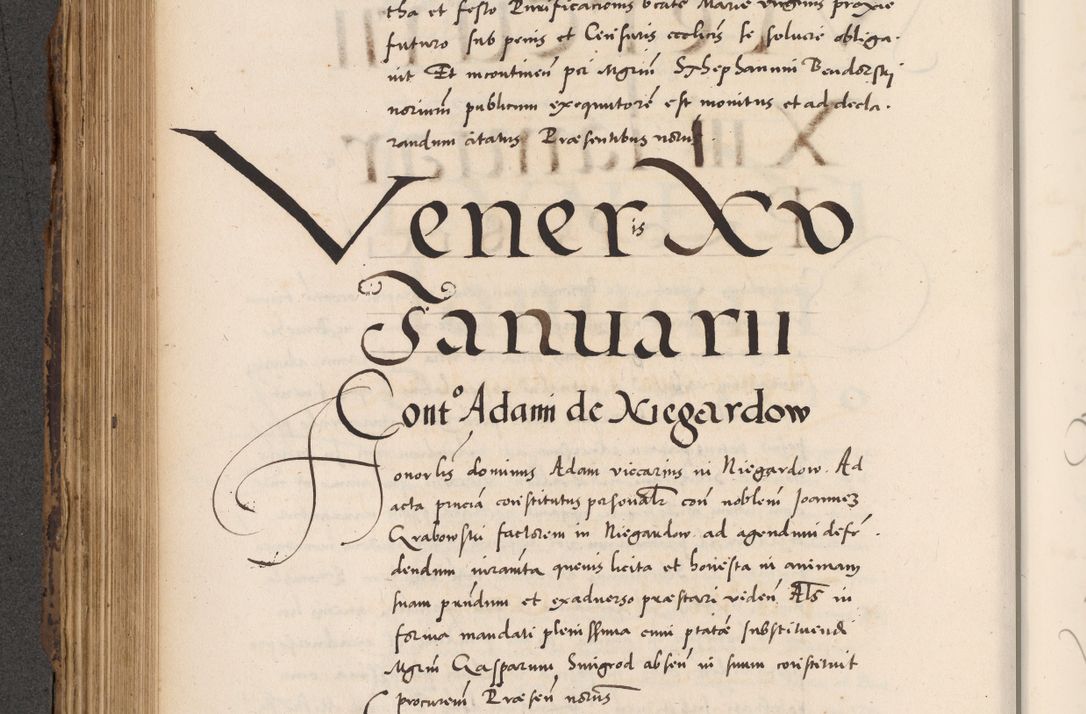 tha et festo Purificacionis beate Marie virginis proxie
futuro sub penis et Censuris ecclicis se soluere obliga-
uit Et incontinen per Mgrm Sthephanum Bendorski
norium publicum exequutore est monitus et ad decla-
randum citatus Præsentibus noriis.
Veneris XV
Januarii
Conto Adami de Niegardow
Honorlis dominus Adam viccarius in Niegardow. Ad
acta pncia constitutus personalr con noblem Joannez
Grabowski factorem in Niegardow. ad agendum defen-
dendum iuramta queuis licita et honesta in animam
suam pundum et exaduerso præstari viden Als in
forma mandati plenissima cum ptate substituendi
Mgrm Gasparum Smigrod absen in suum constituit
procurem Præsen noriis